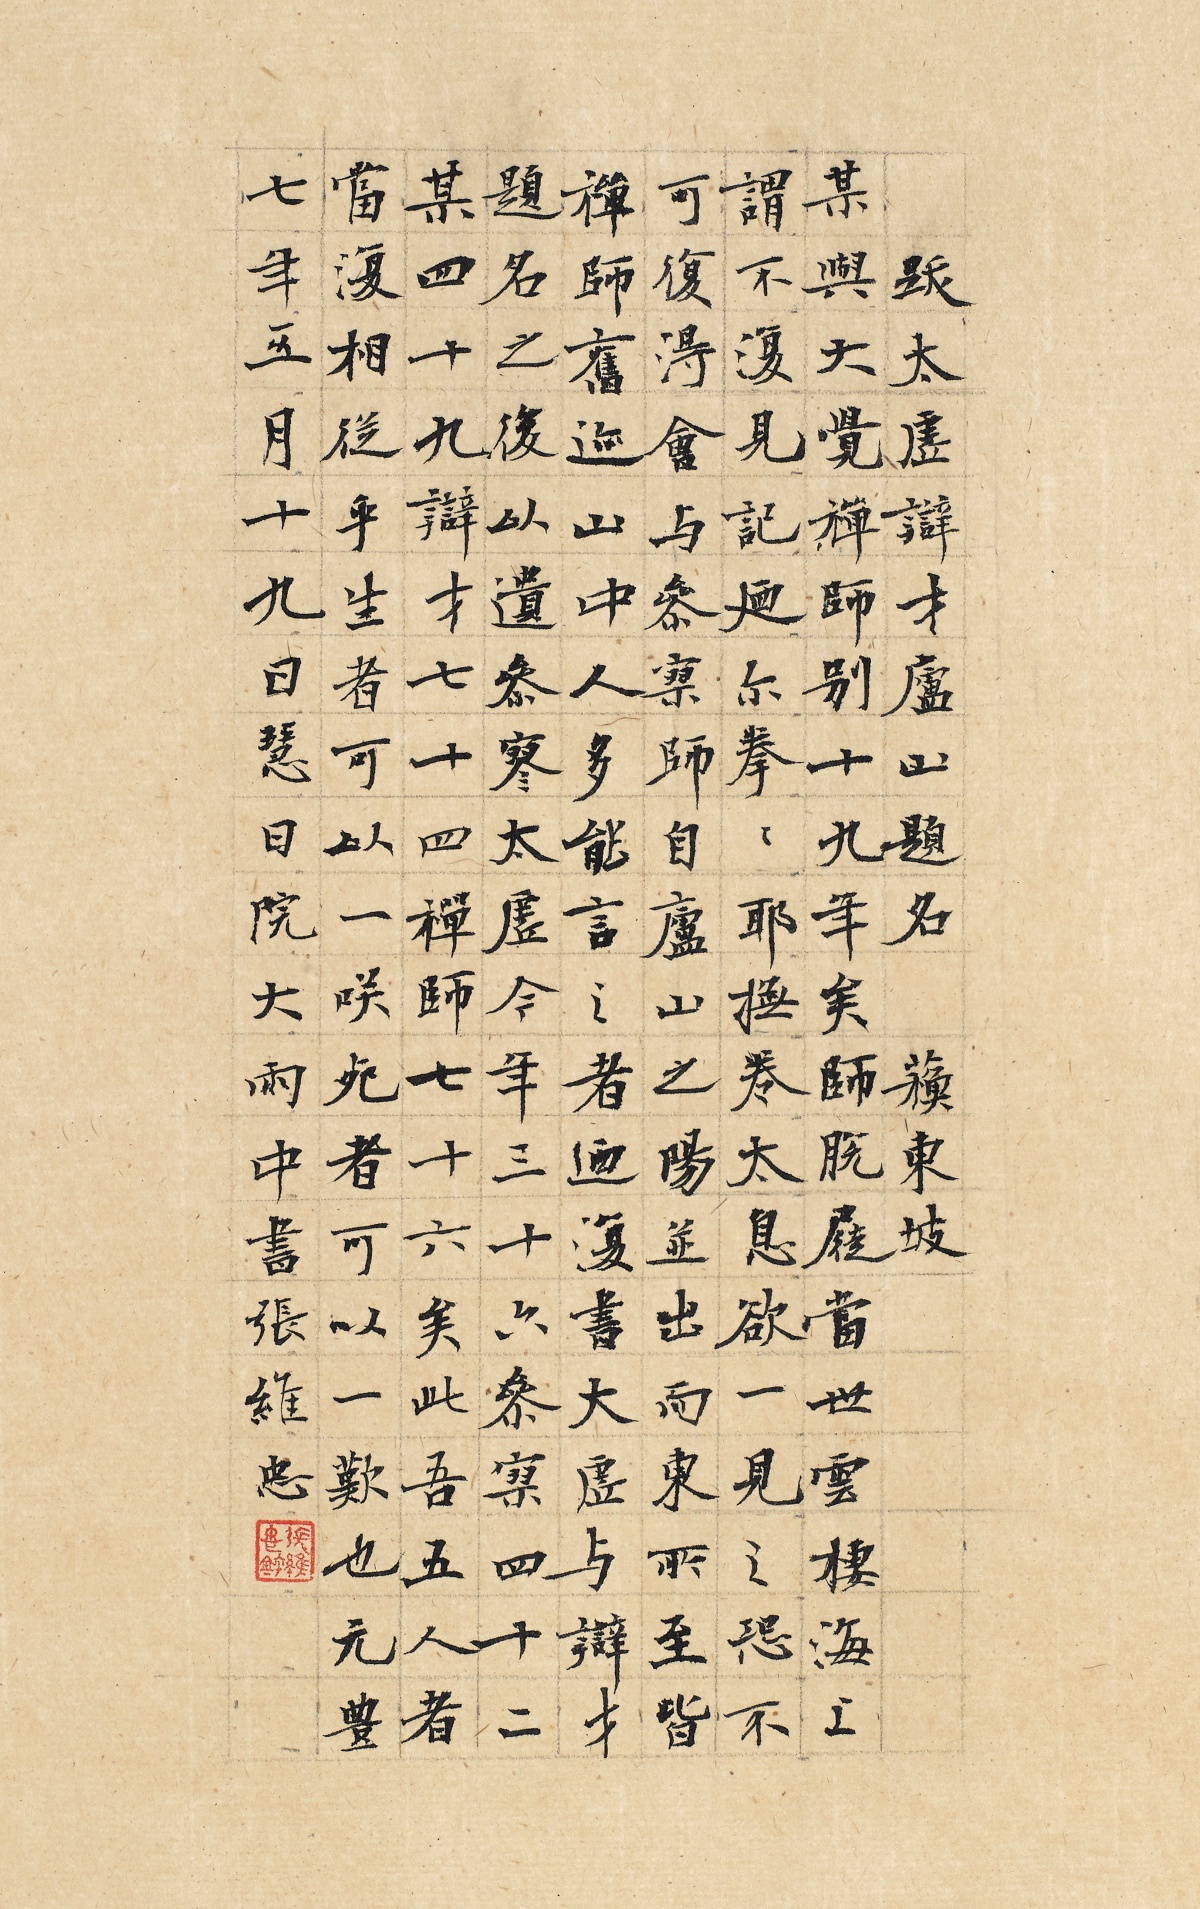 跋太虛辯才廬山題名　蘓東坡
某與大覺禪師别十九年矣師脫屣當世雲棲海上
謂不復見記廼尓拳〻耶撫卷太息欲一見之恐不
可復淂會与叅寥師自廬山之陽並出而東所至皆
禪師舊迹山中人多能言之者廼復書大虛与辯才
題名之後以遺叅寥太虛今年三十六叅寥四十二
某四十九辯才七十四禪師七十六矣此吾五人者
當復相從乎生者可以一咲死者可以一歎也元豊
七年五月十九日慧日院大雨中書張維忠